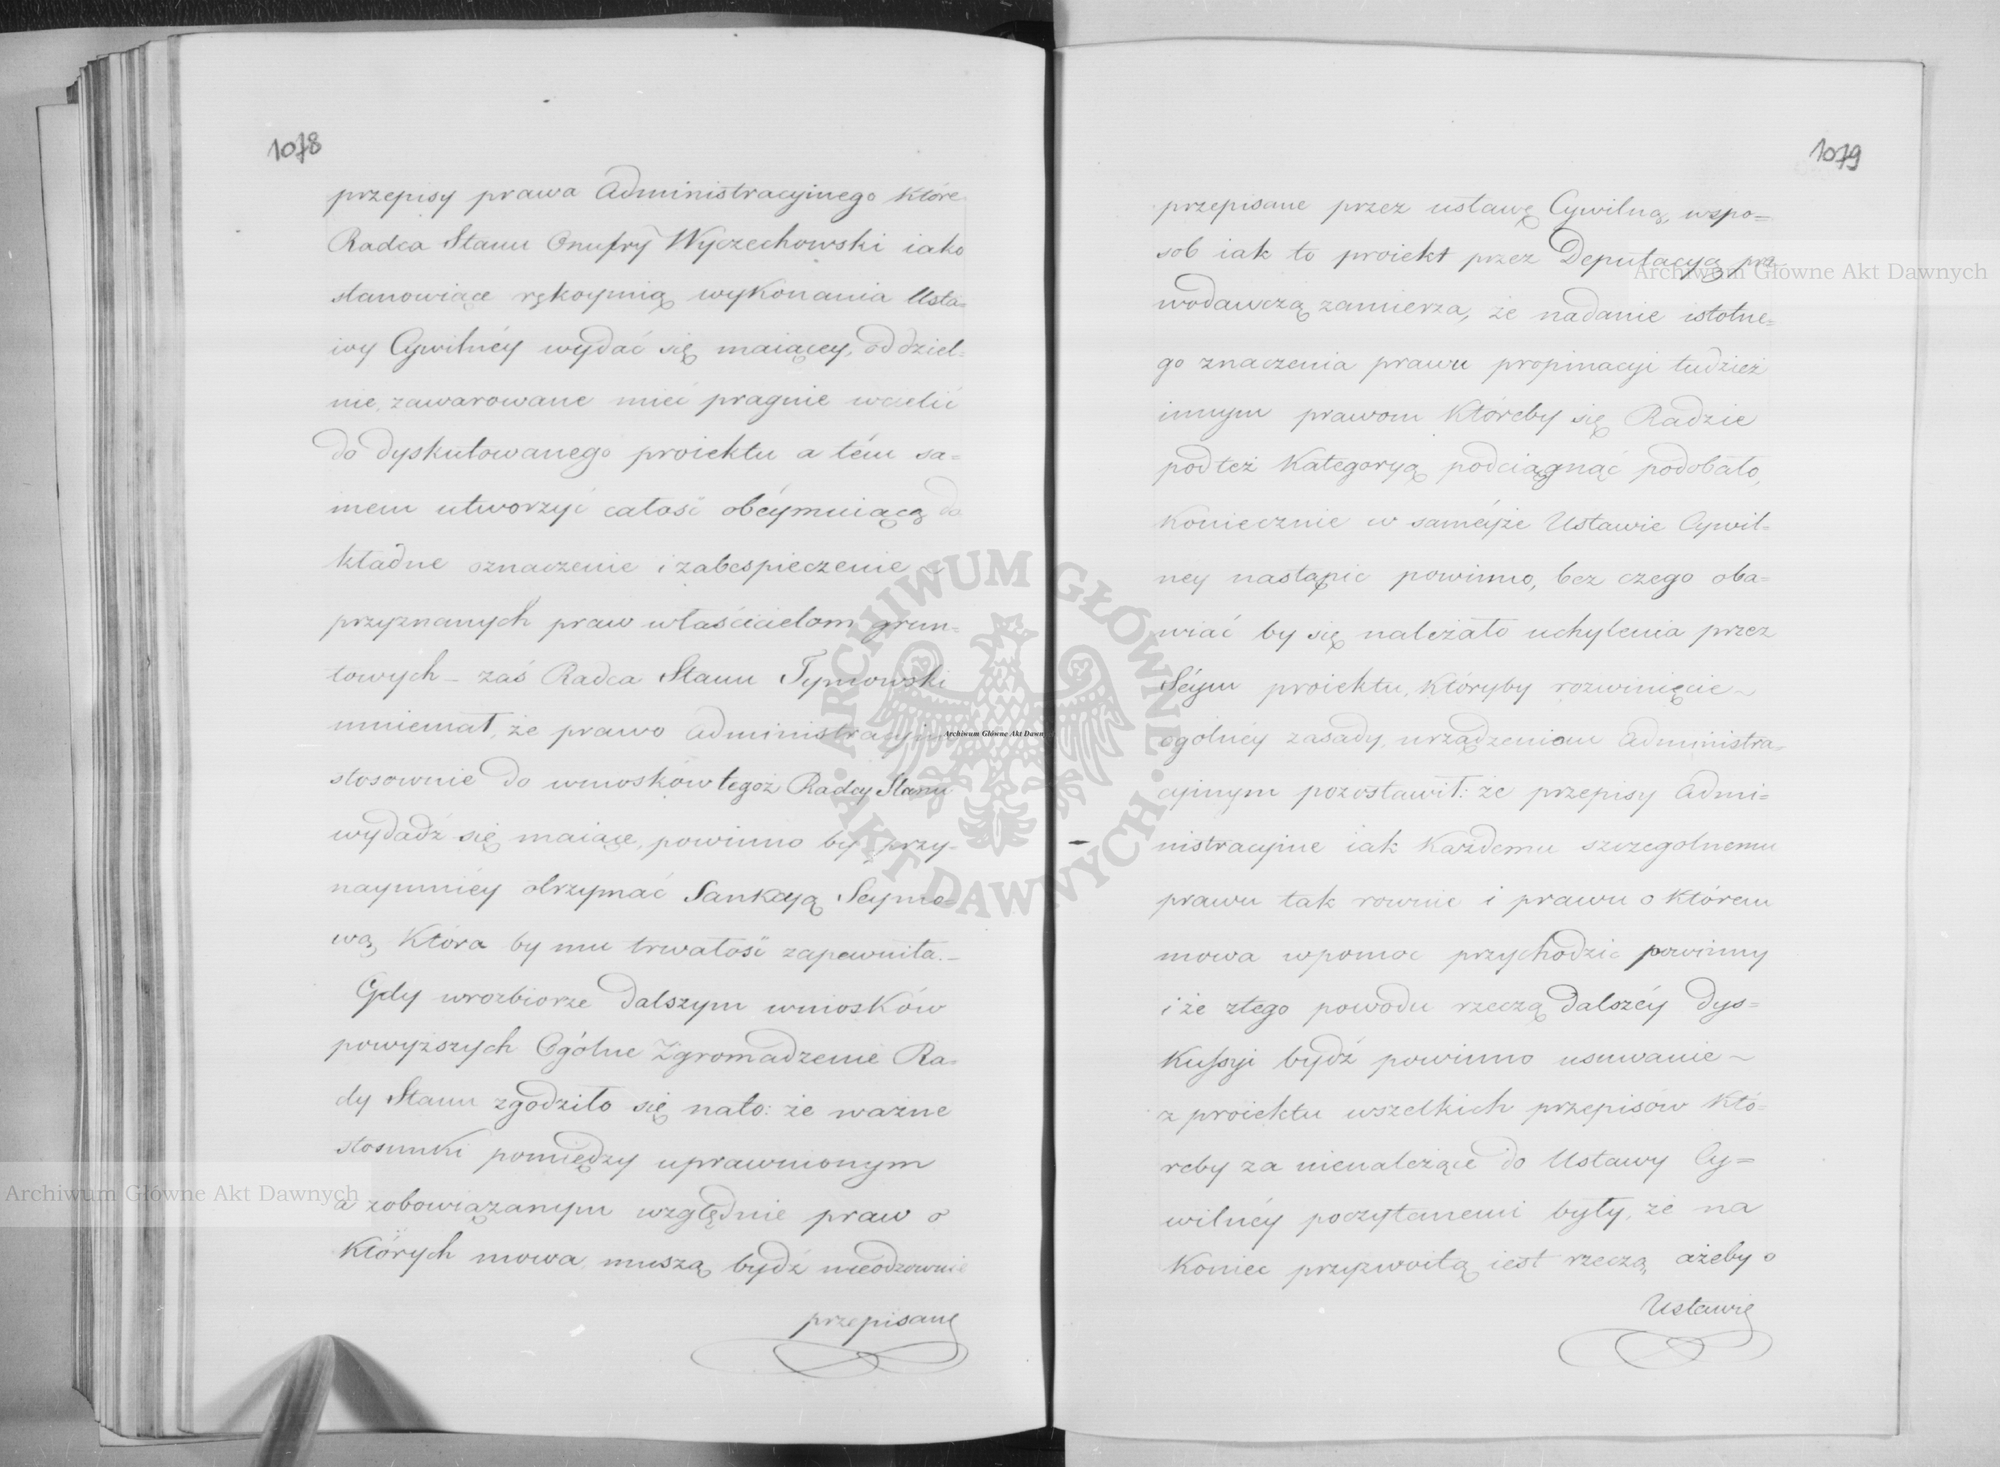 1078
przepisy prawa Administracyinego które
Radca Stanu Onufry Wyczechowski iako
stanowiące rękoymią wykonania Usta=
wy Cywilnéy wydać się maiącey, oddziel=
nie, zawarowane mieć pragnie wcielić
do dyskutowanego proiektu a tém sa=
mem utworzyć całość obéymuiącą do
kładne oznaczenie i zabespieczenie ~
przyznanych praw właścicielom grun=
towych – zaś Radca Stanu Tymowski
mniemał, że prawo administracyin
stosownie do wniosków tegoż Radcy Stanu
wydadź się maiące, powinno by przy-
naymniéy otrzymać Sankcyą Seymo=
wą, która by mu trwałość zapewniła.–
Gdy wrozbiorze dalszym wniosków
powyższych Ogólne Zgromadzenie Ra=
dy Stanu zgodziło się nato: że ważne
stosunki pomiędzy uprawnionym
a zobowiązanym względnie praw o
których mowa, muszą bydź nieodzownie
przepisane
1079
przepisane przez ustawę Cywilną, wspo=
sob iak to proiekt przez Deputacyą pra
wodawczą zamierza, że nadanie istotne=
go znaczenia prawu propinacyi tudzież
innym prawom któreby się Radzie
pod też kategoryą podciągnąć podobało,
koniecznie w saméyże Ustawie Cywil=
ney nastąpić powinno, bez czego oba=
wiać by się należało uchylenia przez
Séym proiektu, któryby rozwinięcie ~
ogólnéy zasady, urządzeniom administra=
cyinym pozostawił: że przepisy admi=
nistracyine iak każdemu szczegolnemu
prawu tak rownie i prawu o którem
mowa wpomoc przychodzić powinny
i że ztego powodu rzeczą dalszéy dys=
kussyi bydź powinno usuwanie ~
z proiektu wszelkich przepisów któ=
reby za nienależące do Ustawy Cy=
wilnéy poczytanemi były, że na
koniec przyzwoitą iest rzeczą, ażeby o
Ustawie
Archiwum Główne Akt Dawnych
Archiwum Główne Akt Dawnych
Archiwum Główne Akt Dawn
ARCHIWUM GŁÓWNE · AKT DAWNYCH ·